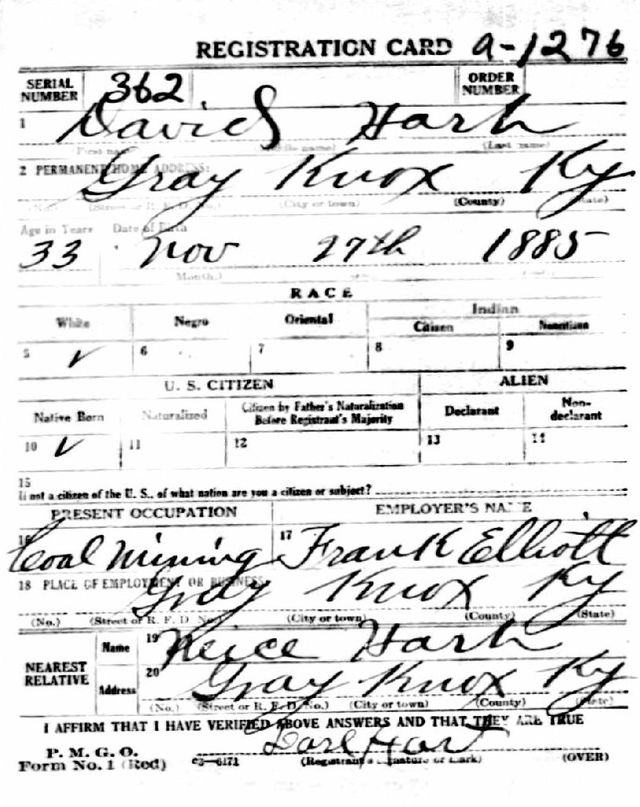 REGISTRATION CARD a-1276
SERIAL NUMBER 362 ORDER NUMBER
1 David Harh
(Last name)
2 PERMANENT HOME ADDRESS:
Gray Knox Ky
(No.) (Street or R. F. D. No.) (City or town) (County) (State)
Age in Years Date of Birth
33 Nov 27th 1885
(Month.)
RACE
White Negro Oriental Indian
Citizen Noncitizen
5 ✓ 6 7 8 9
U. S. CITIZEN ALIEN
Native Born Naturalized Citizen by Father's Naturalization Before Registrant's Majority Declarant Non-declarant
10 ✓ 11 12 13 14
15
If not a citizen of the U. S., of what nation are you a citizen or subject?
PRESENT OCCUPATION EMPLOYER'S NAME
16 Coal Mining 17 Frank Elliott
18 PLACE OF EMPLOYMENT OR BUSINESS:
Gray Knox Ky
(No.) (Street or R. F. D. No.) (City or town) (County) (State)
NEAREST RELATIVE Name 19 Neice Harh
Address 20 Gray Knox Ky
(No.) (Street or R. F. D. No.) (City or town) (County) (State)
I AFFIRM THAT I HAVE VERIFIED ABOVE ANSWERS AND THAT THEY ARE TRUE
P. M. G. O.
Form No. 1 (Red) c3—6171 Hart (Registrant's signature or mark) (OVER)